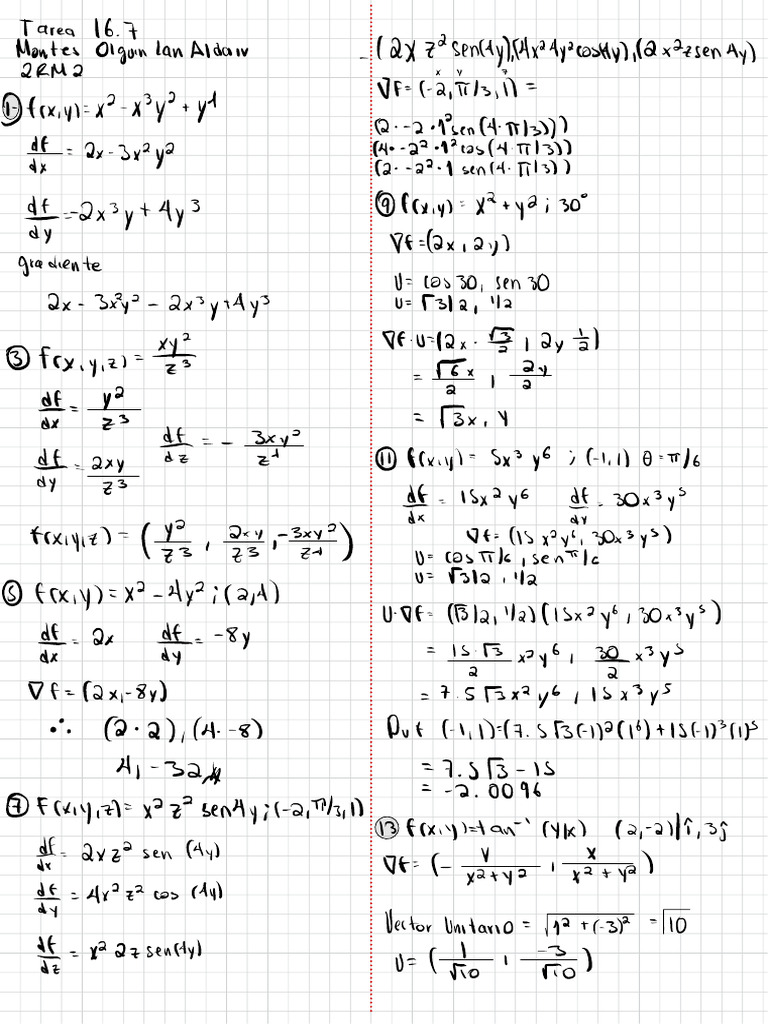 Tarea 16.7
Montes Olguin Ian Aldair
2RM2
1- f(x,y)= x² - x³y² + y⁴
df/dx = 2x - 3x²y²
df/dy = -2x³y + 4y³
gradiente
2x - 3x²y² - 2x³y + 4y³
3 f(x,y,z) = xy²/z³
df/dx = y²/z³
df/dz = - 3xy²/z⁴
df/dy = 2xy/z³
f(x,y,z) = (y²/z³, 2xy/z³, -3xy²/z⁴)
5 f(x,y) = x² - 4y² ; (2,4)
df/dx = 2x df/dy = -8y
∇f = (2x, -8y)
∴ (2·2), (4·-8)
4, -32
7 F(x,y,z) = x² z² sen4y ; (-2, π/3, 1)
df/dx = 2xz² sen (4y)
df/dy = 4x² z² cos (4y)
df/dz = x² 2z sen(4y)
(2x z² sen(4y), (4x² 4y² cos4y), (2x² z sen 4y)
x y z
∇F = (-2, π/3, 1) =
(2·-2·1² sen(4·π/3)))
(4·-2²·1² cos(4·π/3))
(2·-2²·1 sen(4·π/3))
9 f(x,y) = x² + y² ; 30°
∇f = (2x, 2y)
U = cos 30, sen 30
U = √3/2, 1/2
∇f·U = (2x · √3/2, 2y 1/2)
= √6x/2, 2y/2
= √3x, y
11 f(x,y) = 5x³ y⁶ ; (-1,1) θ = π/6
df/dx = 15x² y⁶ df/dy = 30x³y⁵
∇f = (15 x²y⁶, 30x³y⁵)
U = cos π/6, sen π/6
U = √3/2, 1/2
U·∇f = (√3/2, 1/2) (15x² y⁶, 30x³y⁵)
= 15·√3/2 x²y⁶, 30/2 x³y⁵
= 7.5√3x² y⁶, 15x³y⁵
Duf (-1,1) = (7.5√3(-1)²(1⁶) + 15(-1)³(1)⁵
= 7.5√3 - 15
= -2.0096
13 f(x,y) = tan⁻¹ (y/x) (2,-2) | î, 3ĵ
∇f = (- y/x²+y², x/x²+y²)
Vector Unitario = √1² + (-3)² = √10
U = (1/√10, -3/√10)